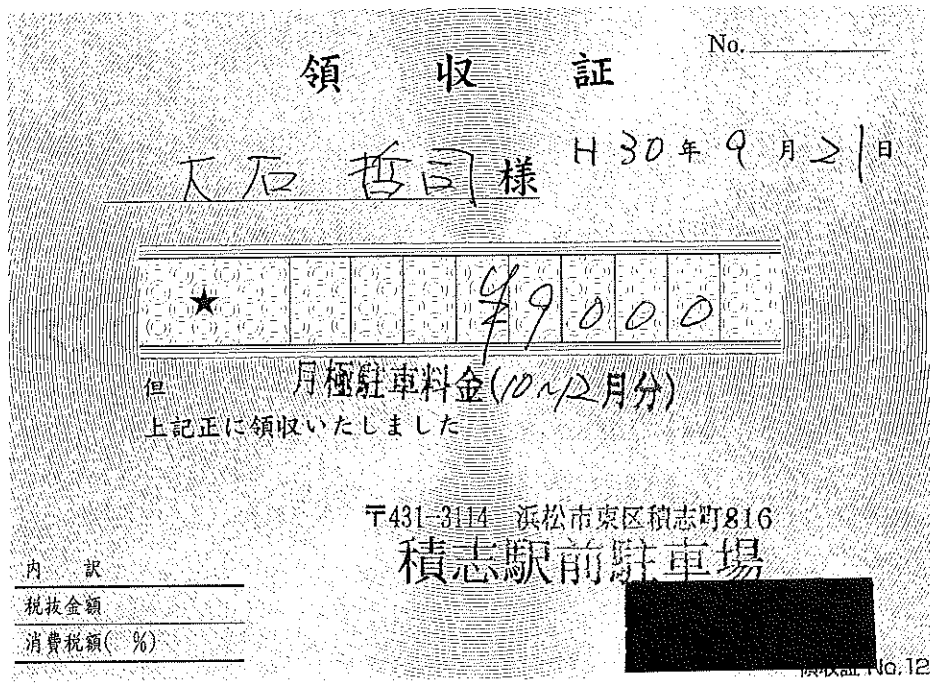 No.
領収証
大石 哲司 様
H30年9月21日
★ ¥9000
但 月極駐車料金(10~12月分)
上記正に領収いたしました
〒431-3114 浜松市東区積志町816
積志駅前駐車場
内 訳
税抜金額
消費税額( %)
領収証 No.12